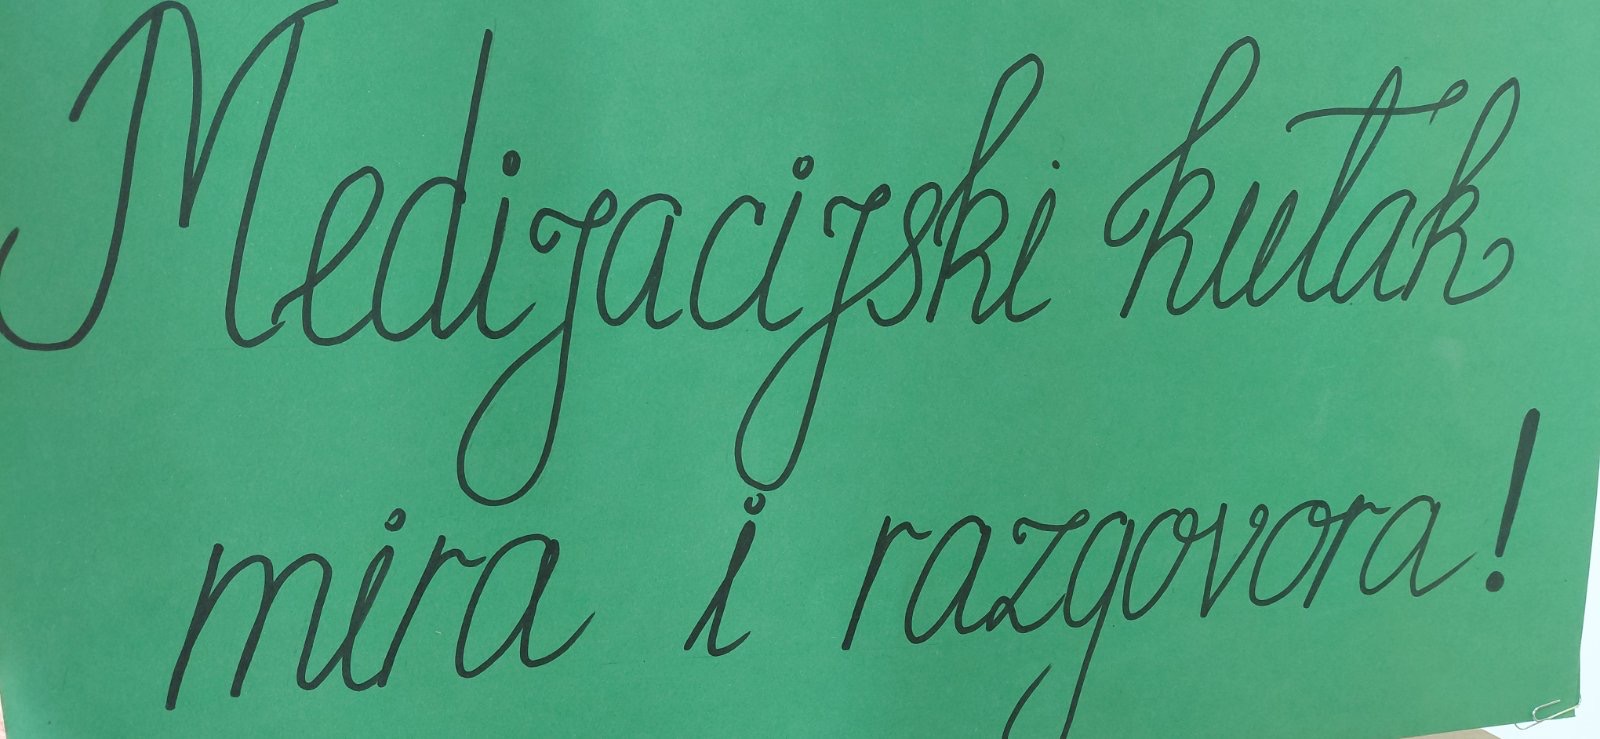 Medijacijski kutak
mira i razgovora!